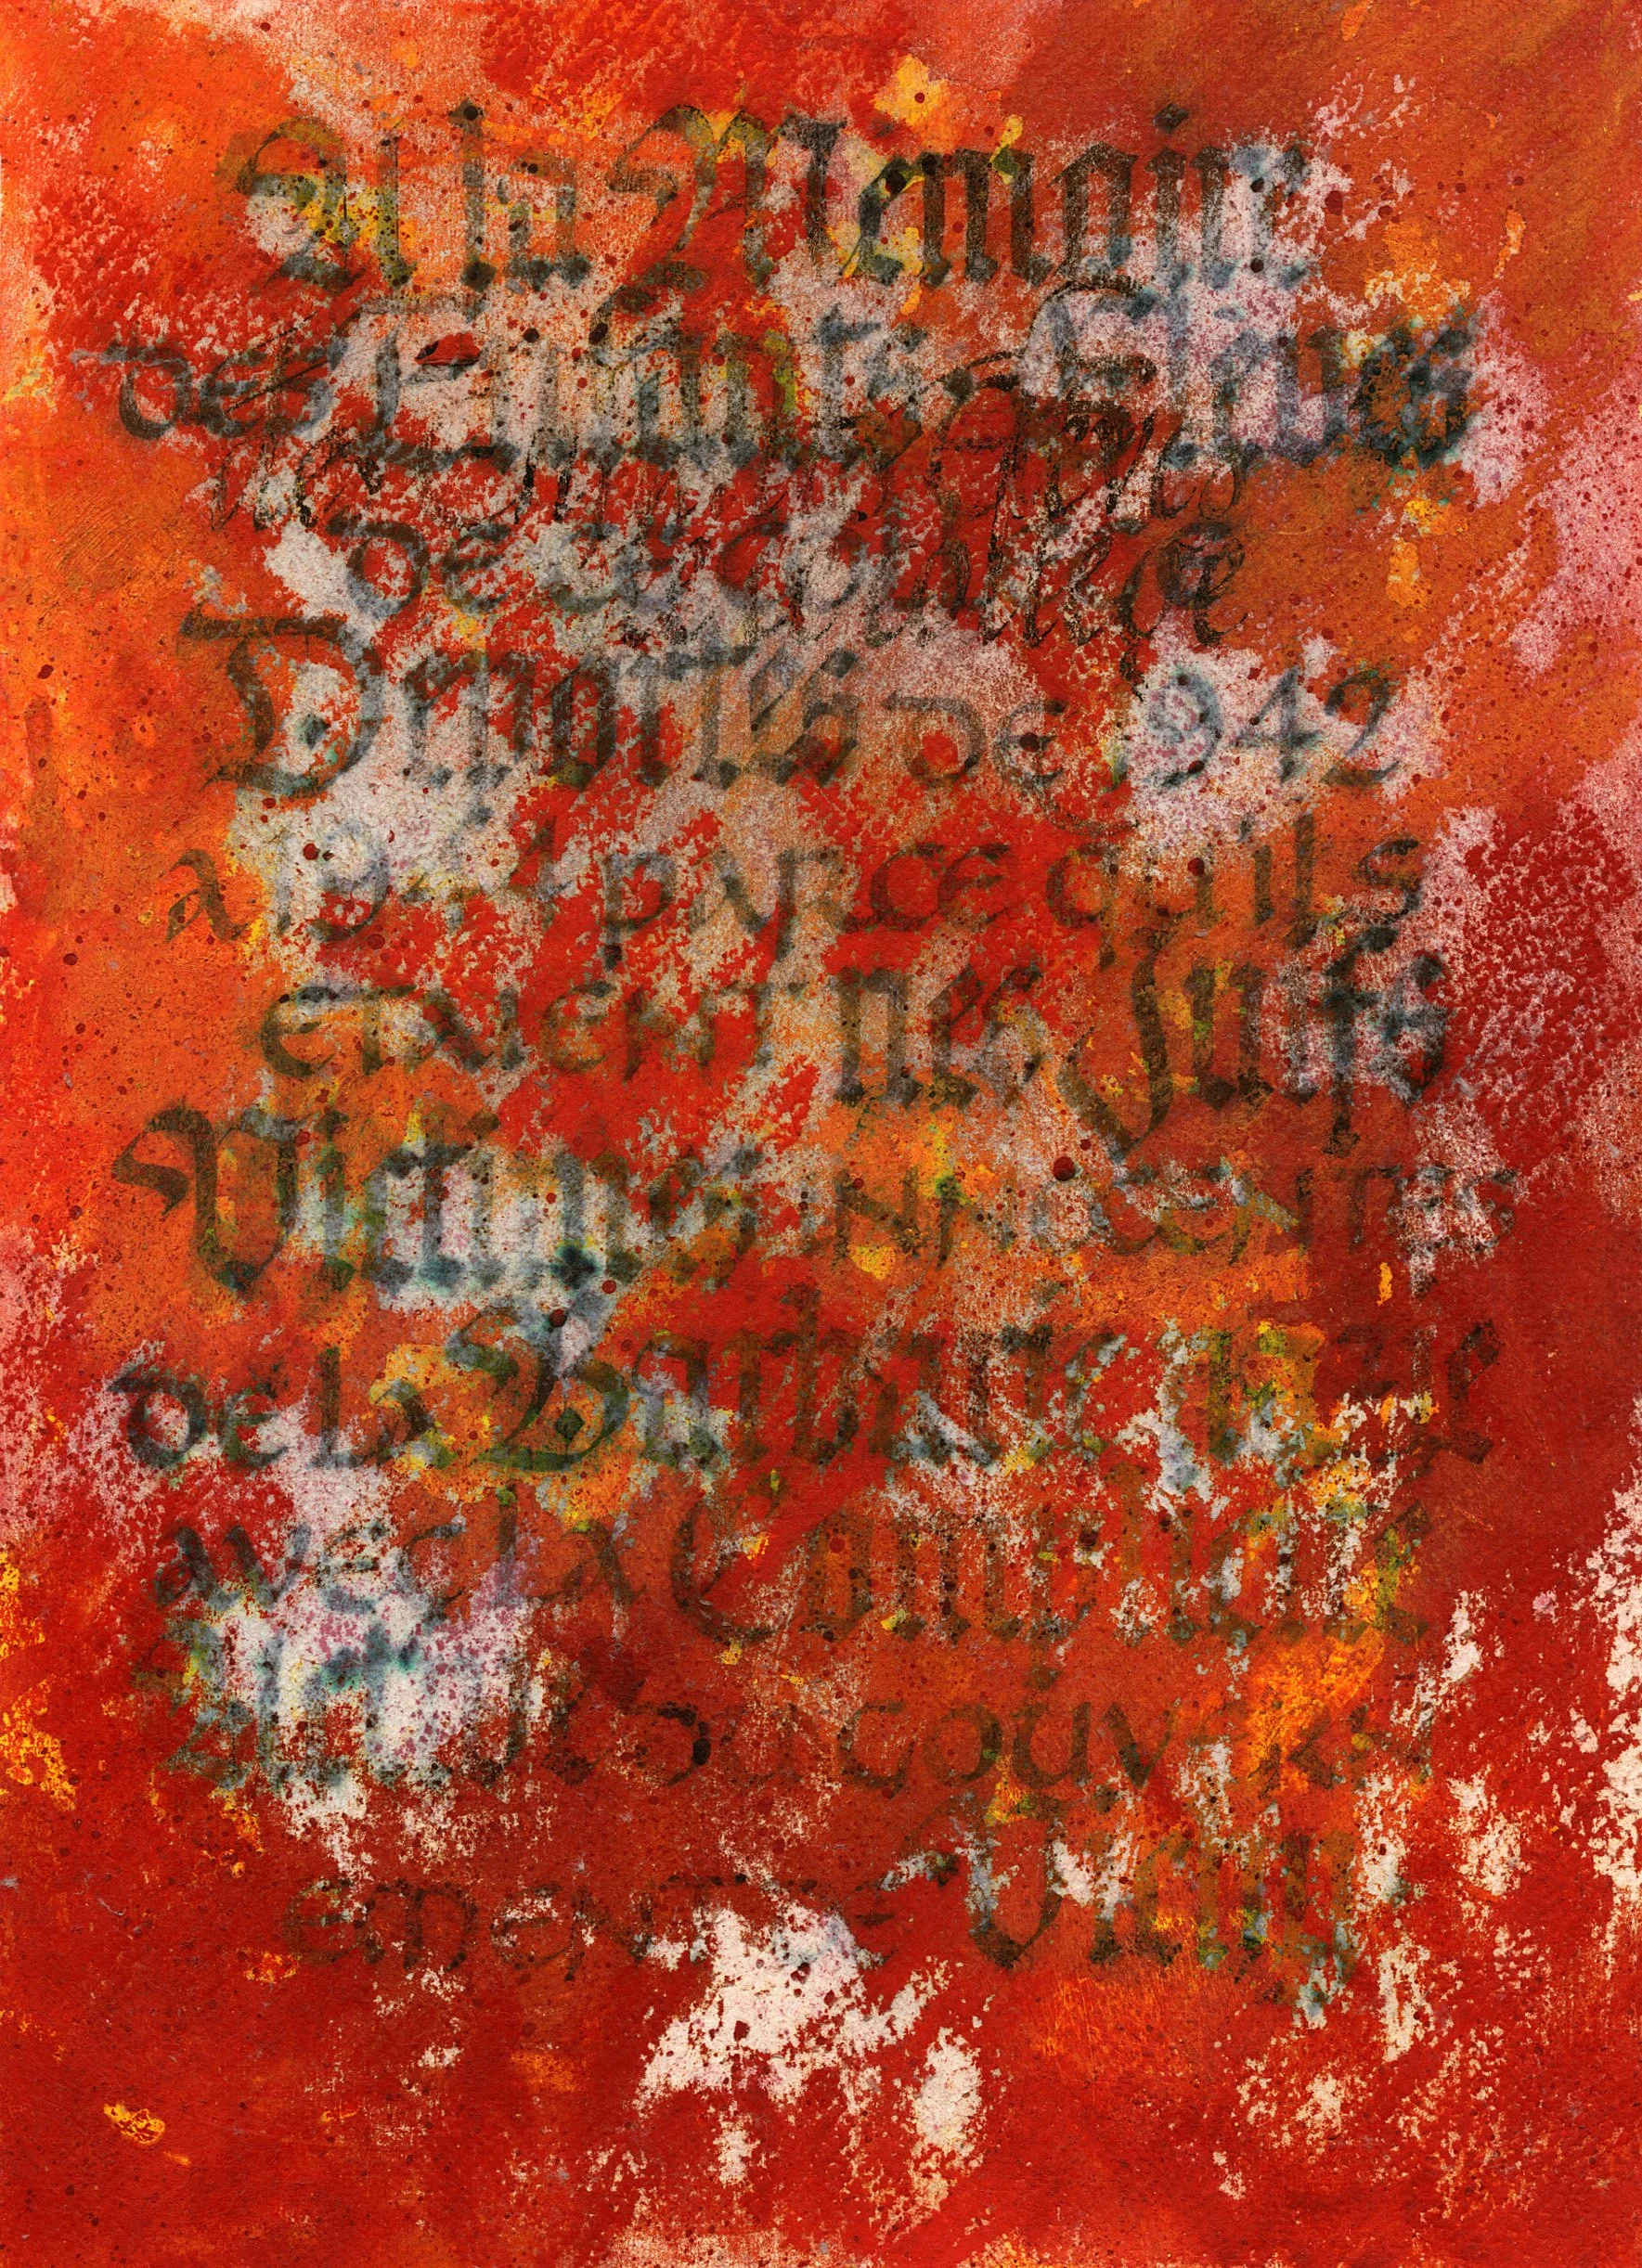 A la Mémoire
des Enfants Elèves
de
Déportés de 1942
à 1944 parce qu'ils
étaient nés Juifs
Victimes innocentes
de la Barbarie nazie
avec la Complicité
Active gouvern
ement de Vichy